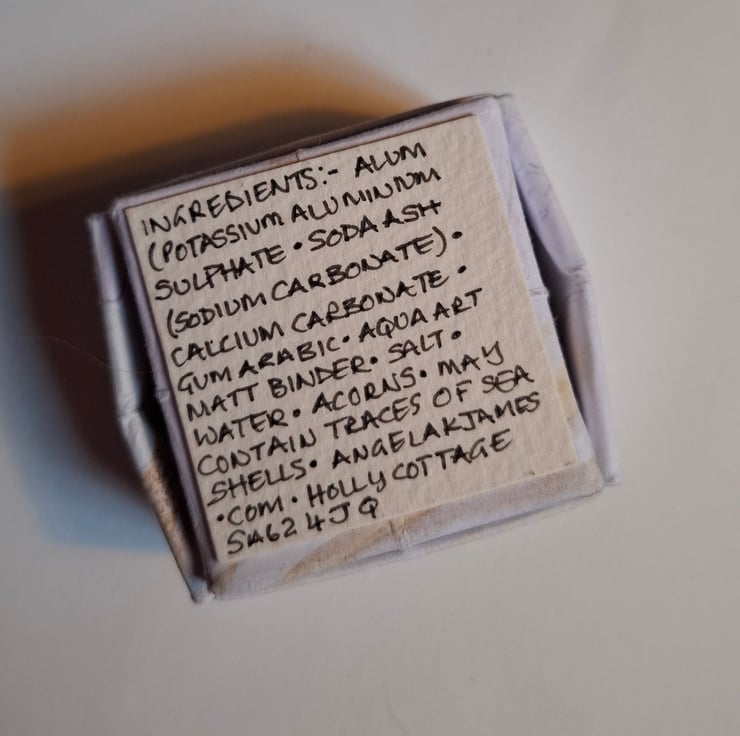 INGREDIENTS:- ALUM
(POTASSIUM ALUMINIUM
SULPHATE • SODA ASH
(SODIUM CARBONATE) •
CALCIUM CARBONATE •
GUM ARABIC • AQUA ART
MATT BINDER • SALT •
WATER • ACORNS • MAY
CONTAIN TRACES OF SEA
SHELLS • ANGELAKJAMES
•COM • HOLLY COTTAGE
SA62 4JQ